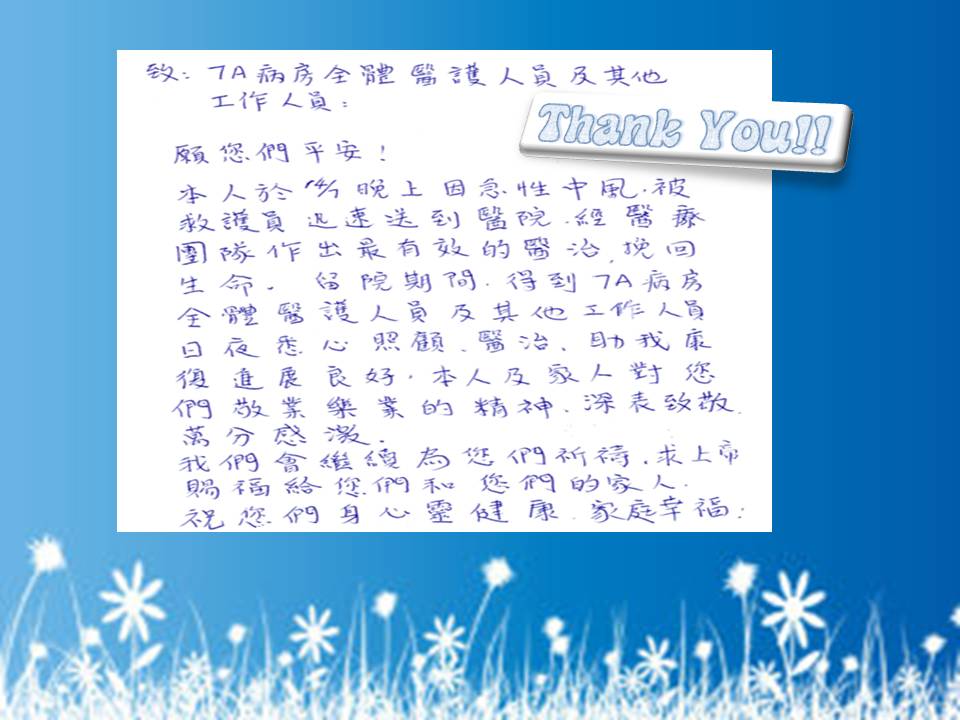 致：7A病房全體醫護人員及其他
工作人員：
Thank You!!
願您們平安！
本人於 晚上因急性中風．被
救護員迅速送到醫院．經醫療
團隊作出最有效的醫治，挽回
生命。留院期間．得到7A病房
全體醫護人員及其他工作人員
日夜悉心照顧、醫治、助我康
復進展良好．本人及家人對您
們敬業樂業的精神、深表致敬．
萬分感激．
我們會繼續為您們祈禱．求上帝
賜福給您們和您們的家人．
祝您們身心靈健康．家庭幸福：